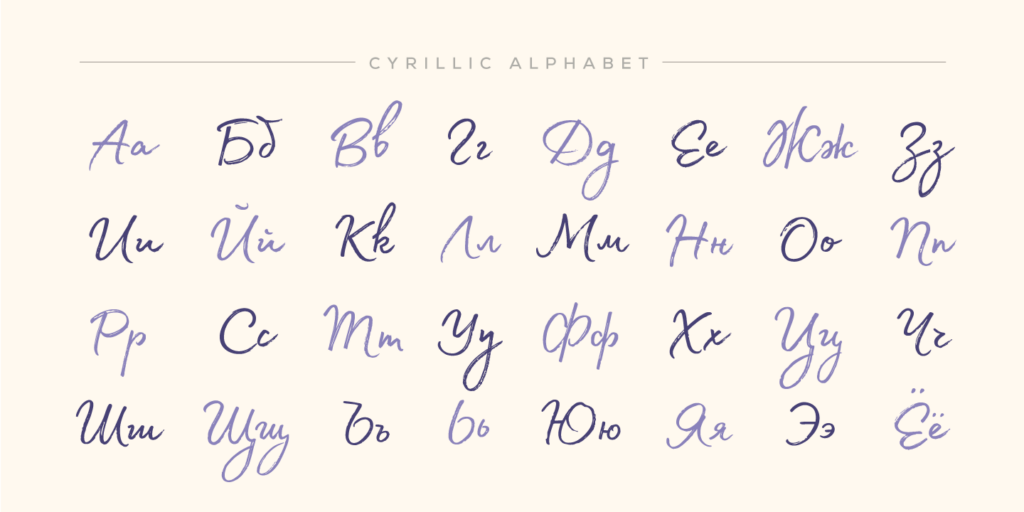 CYRILLIC ALPHABET
Аа Бб Вв Гг Дд Ее Жж Зз
Ии Йй Кк Лл Мм Нн Оо Пп
Рр Сс Тт Уу Фф Хх Цц Чч
Шш Щщ Ъъ Ьь Юю Яя Ээ Ёё